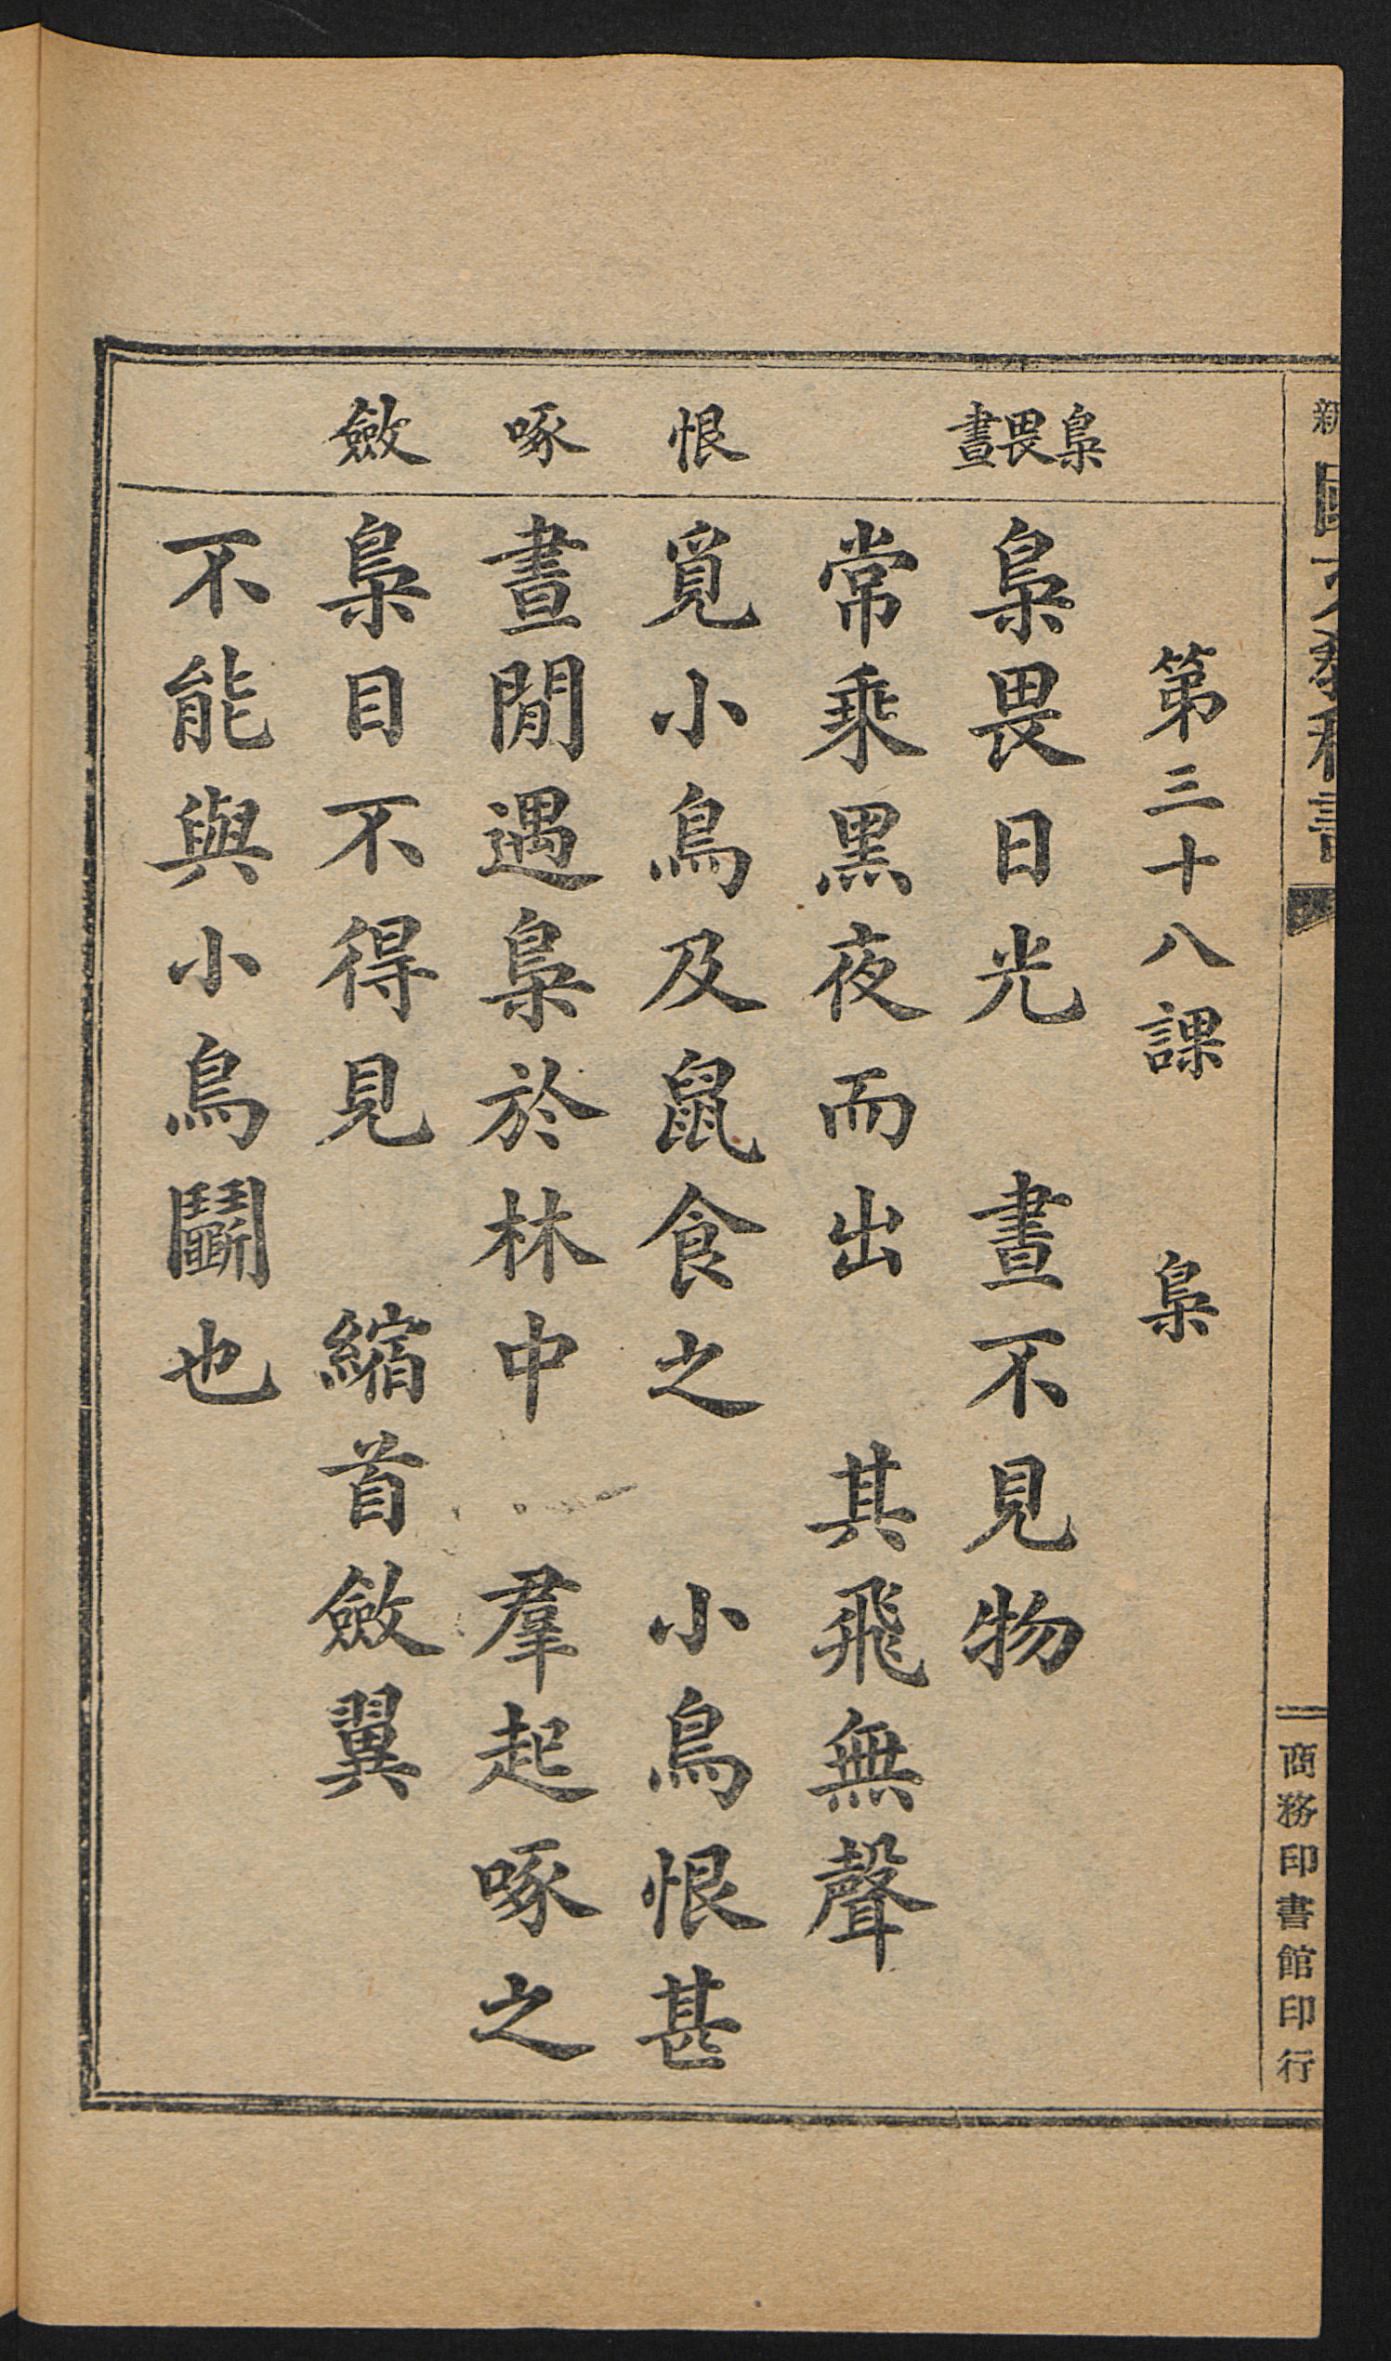 第三十八課　梟
梟畏晝
梟畏日光　晝不見物
常乘黑夜而出　其飛無聲
恨
覓小鳥及鼠食之　小鳥恨甚
啄
晝閒遇梟於林中　羣起啄之
斂
梟目不得見　縮首斂翼
不能與小鳥鬭也
商務印書館印行